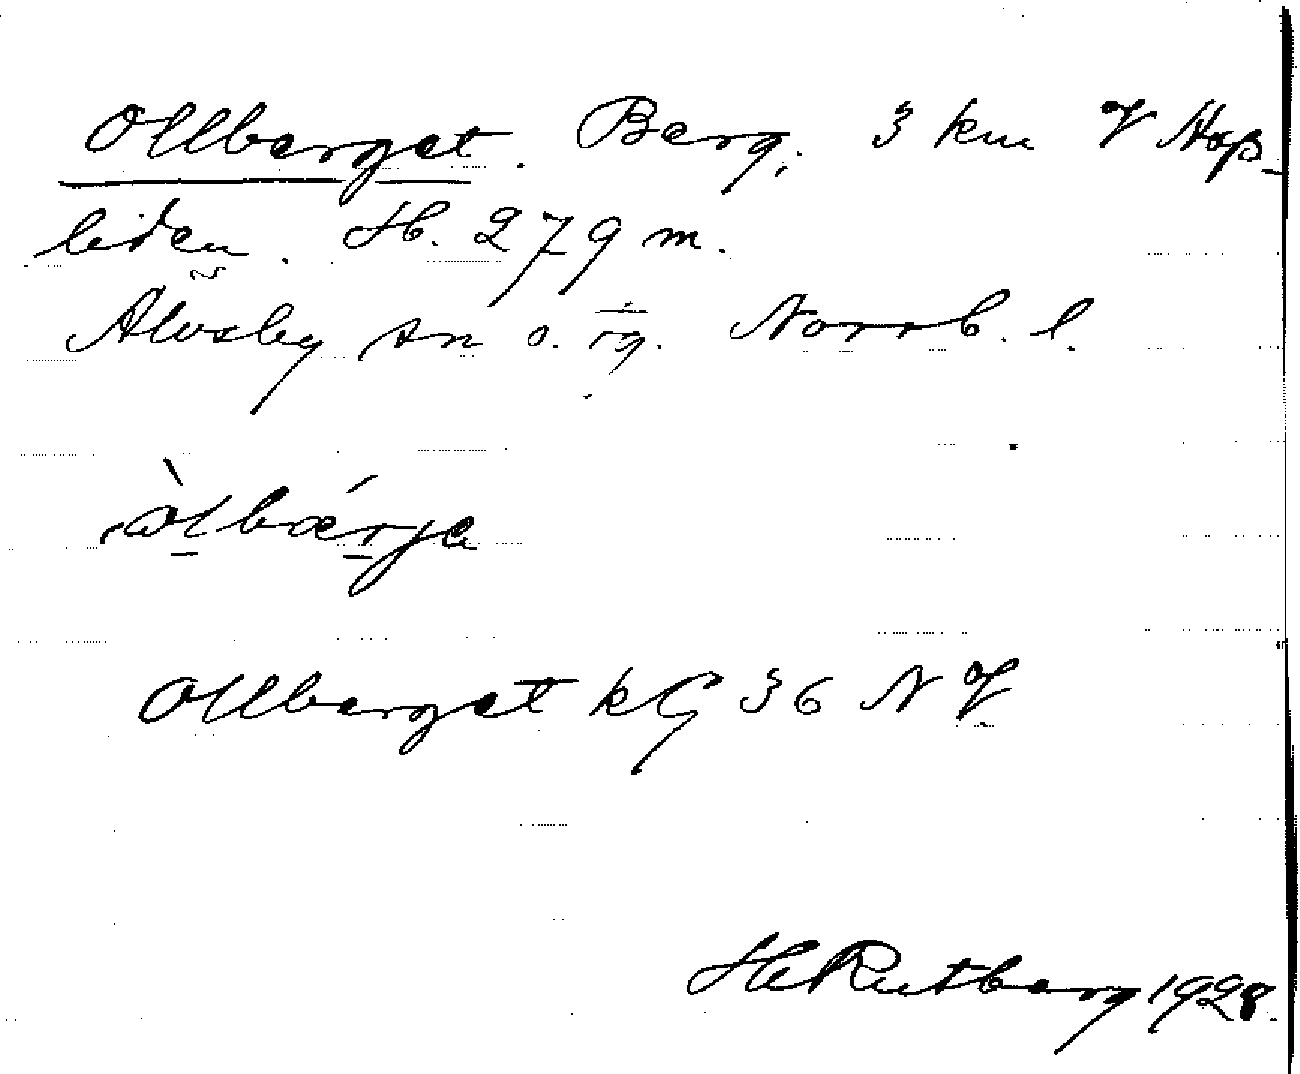 Ollberget. Berg, 3 km V Hop-
liden. H. 279 m.
Älvsby sn o. tg. Norrb. l.
òlbærje
Ollberget kG 36 NV
H Rutberg 1928.